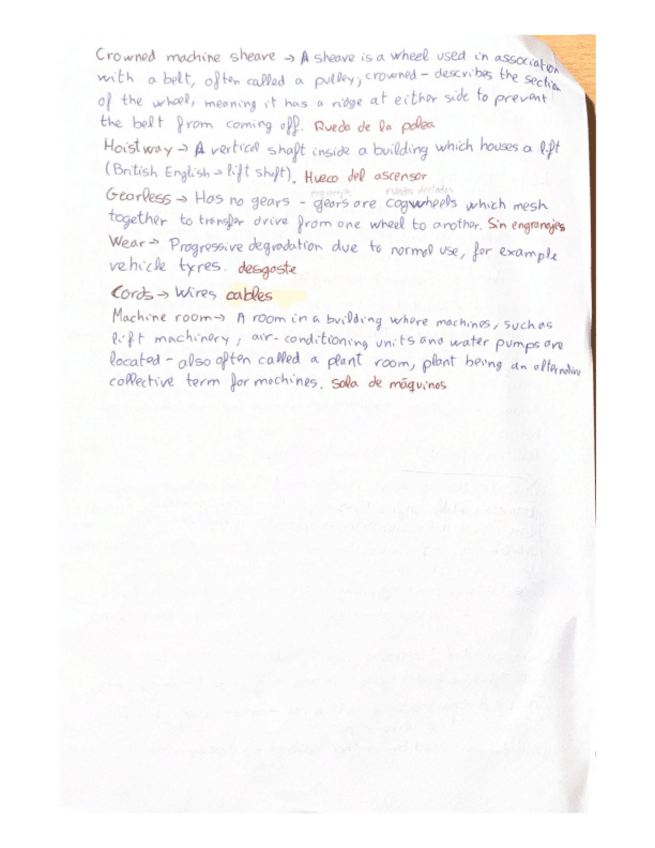 Crowned machine sheave → A sheave is a wheel used in association
with a belt, often called a pulley; crowned - describes the sectio
of the wheel, meaning it has a ridge at either side to prevent
the belt from coming off. Rueda de la polea
Hoistway → A vertical shaft inside a building which houses a lift
(British English → lift shaft). Hueco del ascensor
engranajes ruedas dentadas
Gearless → Has no gears - gears are cogwheels which mesh
together to transfer drive from one wheel to another. Sin engranajes
Wear → Progressive degradation due to normal use, for example
vehicle tyres. desgaste
Cords → Wires cables
Machine room → A room in a building where machines, such as
lift machinery, air-conditioning units and water pumps are
located - also often called a plant room, plant being an alternative
collective term for machines. Sala de máquinas